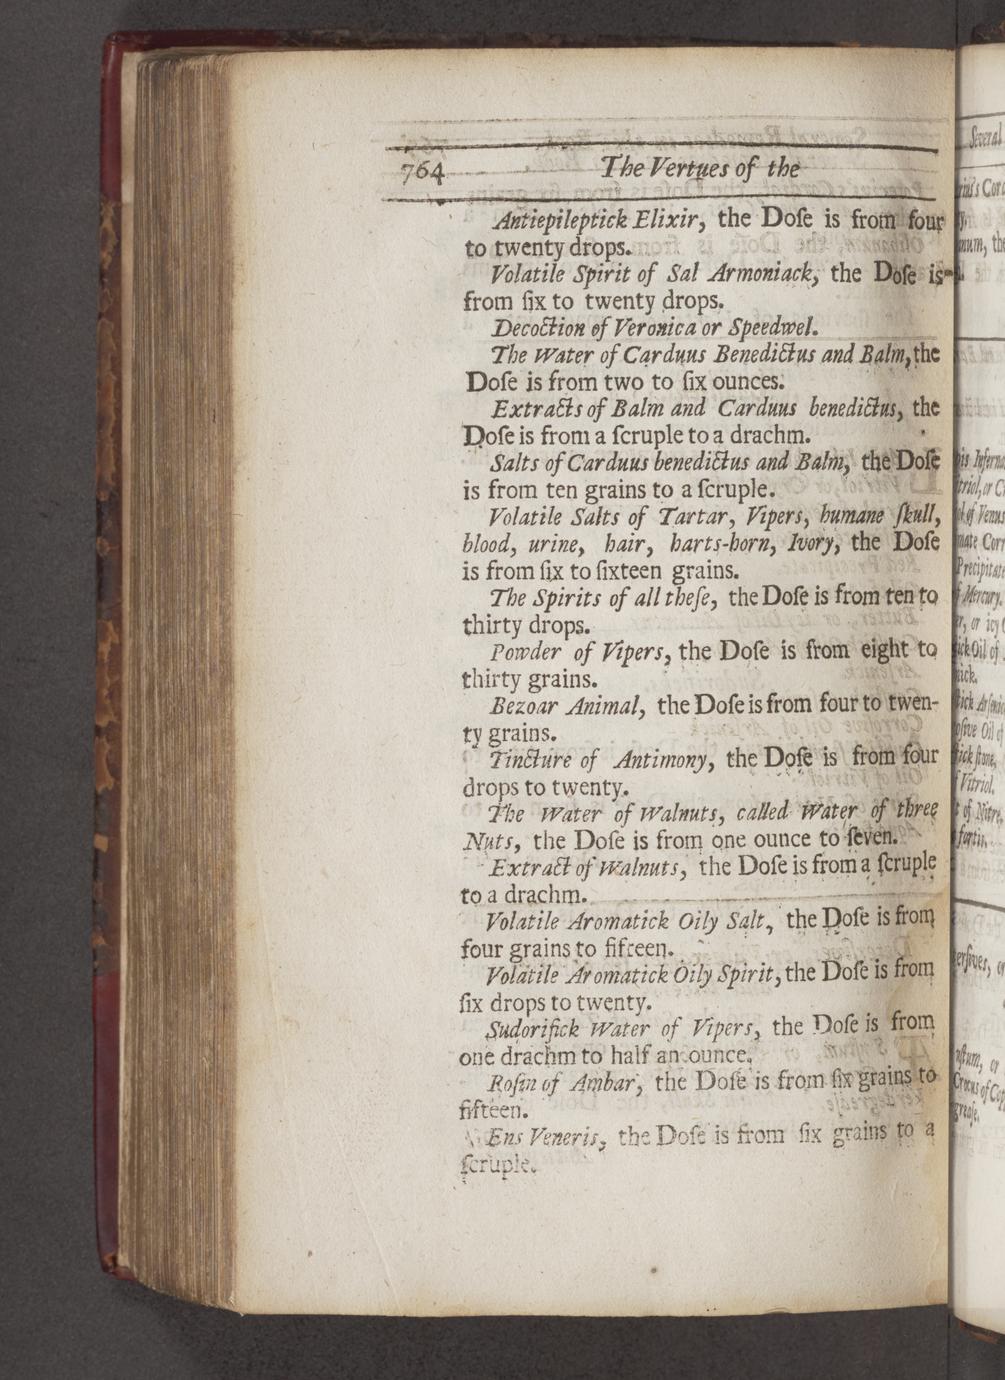 764 The Vertues of the
Antiepileptick Elixir, the Doſe is from four
to twenty drops.
Volatile Spirit of Sal Armoniack, the Doſe is
from ſix to twenty drops.
Decoction of Veronica or Speedwel.
The Water of Carduus Benedictus and Balm, the
Doſe is from two to ſix ounces.
Extracts of Balm and Carduus benedictus, the
Doſe is from a ſcruple to a drachm.
Salts of Carduus benedictus and Balm, the Doſe
is from ten grains to a ſcruple.
Volatile Salts of Tartar, Vipers, humane ſkull,
blood, urine, hair, harts-horn, Ivory, the Doſe
is from ſix to ſixteen grains.
The Spirits of all theſe, the Doſe is from ten to
thirty drops.
Powder of Vipers, the Doſe is from eight to
thirty grains.
Bezoar Animal, the Doſe is from four to twen-
ty grains.
Tincture of Antimony, the Doſe is from four
drops to twenty.
The Water of Walnuts, called Water of three
Nuts, the Doſe is from one ounce to ſeven.
Extract of Walnuts, the Doſe is from a ſcruple
to a drachm.
Volatile Aromatick Oily Salt, the Doſe is from
four grains to fifteen.
Volatile Aromatick Oily Spirit, the Doſe is from
ſix drops to twenty.
Sudorifick Water of Vipers, the Doſe is from
one drachm to half an ounce.
Roſin of Ambar, the Doſe is from ſix grains to
fifteen.
Ens Veneris, the Doſe is from ſix grains to a
ſcruple.
Several